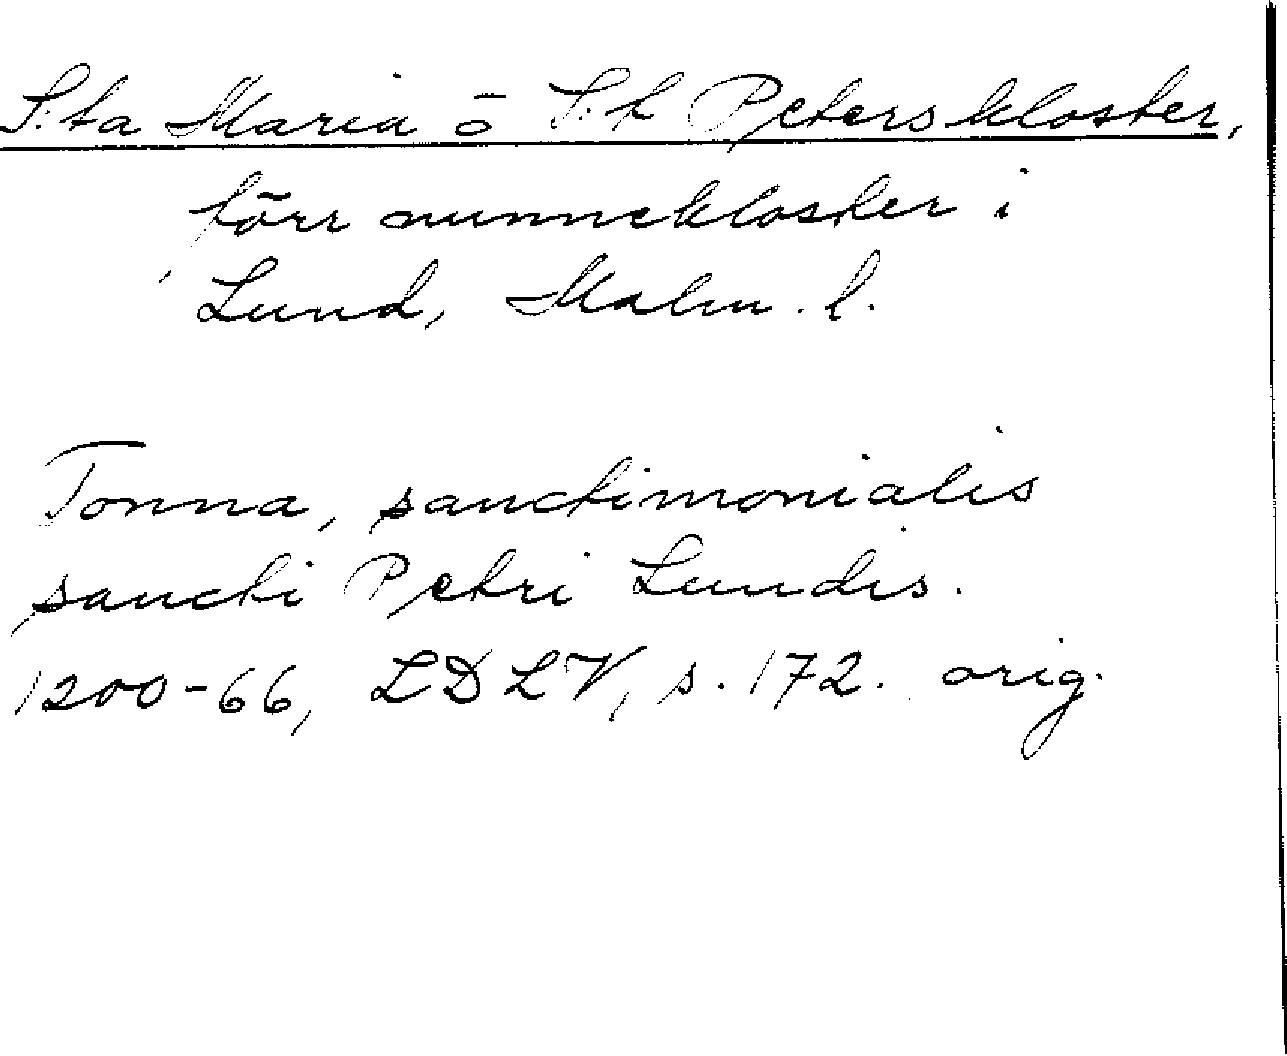 S:ta Maria o S:t Peters kloster,
förr nunnekloster i
Lund, Malm. l.
Tonna, sanctimonialis
sancti Petri Lundis.
1200-66, LDLV, s. 172. orig.